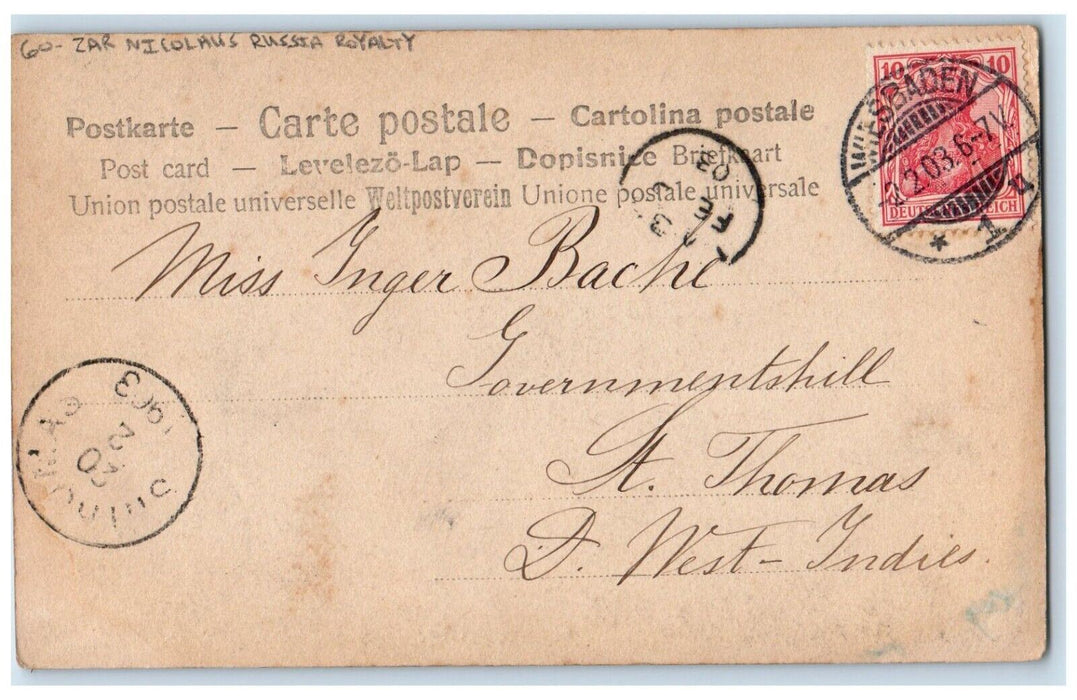 60- ZAR NICOLAUS RUSSIA ROYALTY
Postkarte – Carte postale – Cartolina postale
Post card – Levelező-Lap – Dopisnice Briefkaart
Union postale universelle Weltpostverein Unione postale universale
10 10
DEUTSCHES REICH
WIESBADEN
2.03.6-7V.
* 1
Miss Inger Bache
Governmentshill
St. Thomas
D. West-Indies.
1903